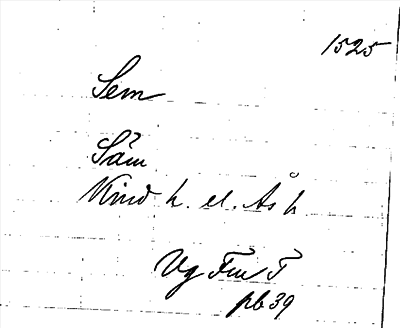 1525
Sem
Säm
Kind h. el. Ås h
Vg Fm T
pb 39